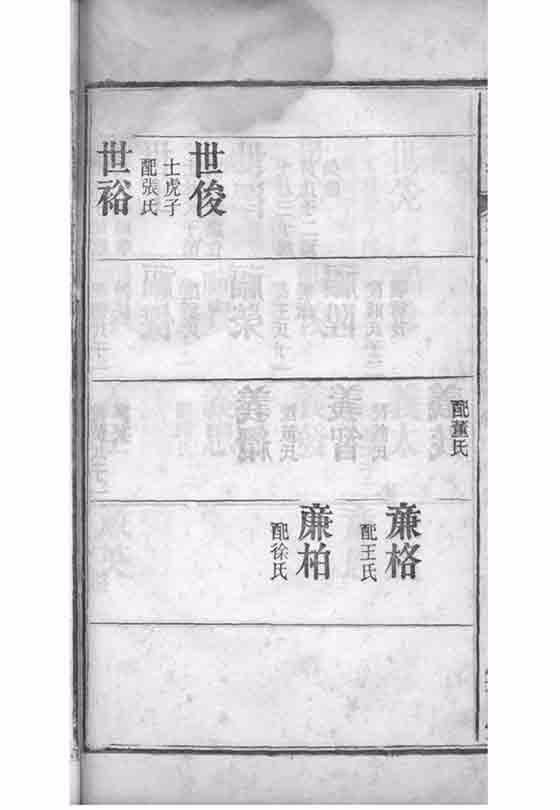 世俊
士虎子
配張氏
世裕
配董氏
廉格
配王氏
廉柏
配徐氏